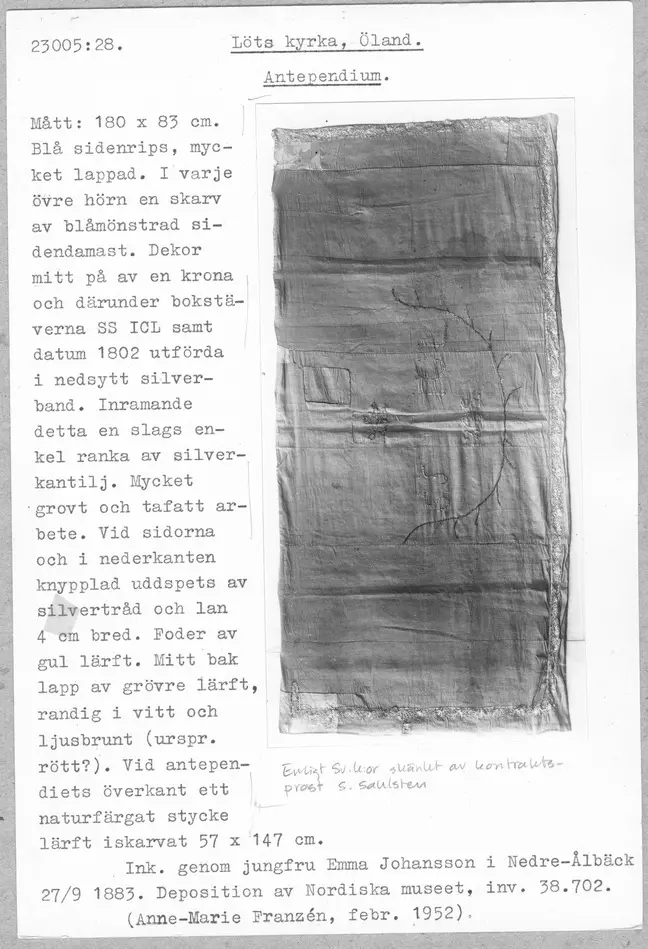 23005:28.
Löts kyrka, Öland.
Antependium.
Mått: 180 x 83 cm.
Blå sidenrips, myc-
ket lappad. I varje
övre hörn en skarv
av blåmönstrad si-
dendamast. Dekor
mitt på av en krona
och därunder bokstä-
verna SS ICL samt
datum 1802 utförda
i nedsytt silver-
band. Inramande
detta en slags en-
kel ranka av silver-
kantilj. Mycket
grovt och tafatt ar-
bete. Vid sidorna
och i nederkanten
knypplad uddspets av
silvertråd och lan
4 cm bred. Foder av
gul lärft. Mitt bak
lapp av grövre lärft,
randig i vitt och
ljusbrunt (urspr.
rött?). Vid antepen-
diets överkant ett
naturfärgat stycke
lärft iskarvat 57 x 147 cm.
Enligt Sv.k:or skänkt av kontrakts-
prost S. Sahlsten
Ink. genom jungfru Emma Johansson i Nedre-Ålbäck
27/9 1883. Deposition av Nordiska museet, inv. 38.702.
(Anne-Marie Franzén, febr. 1952).